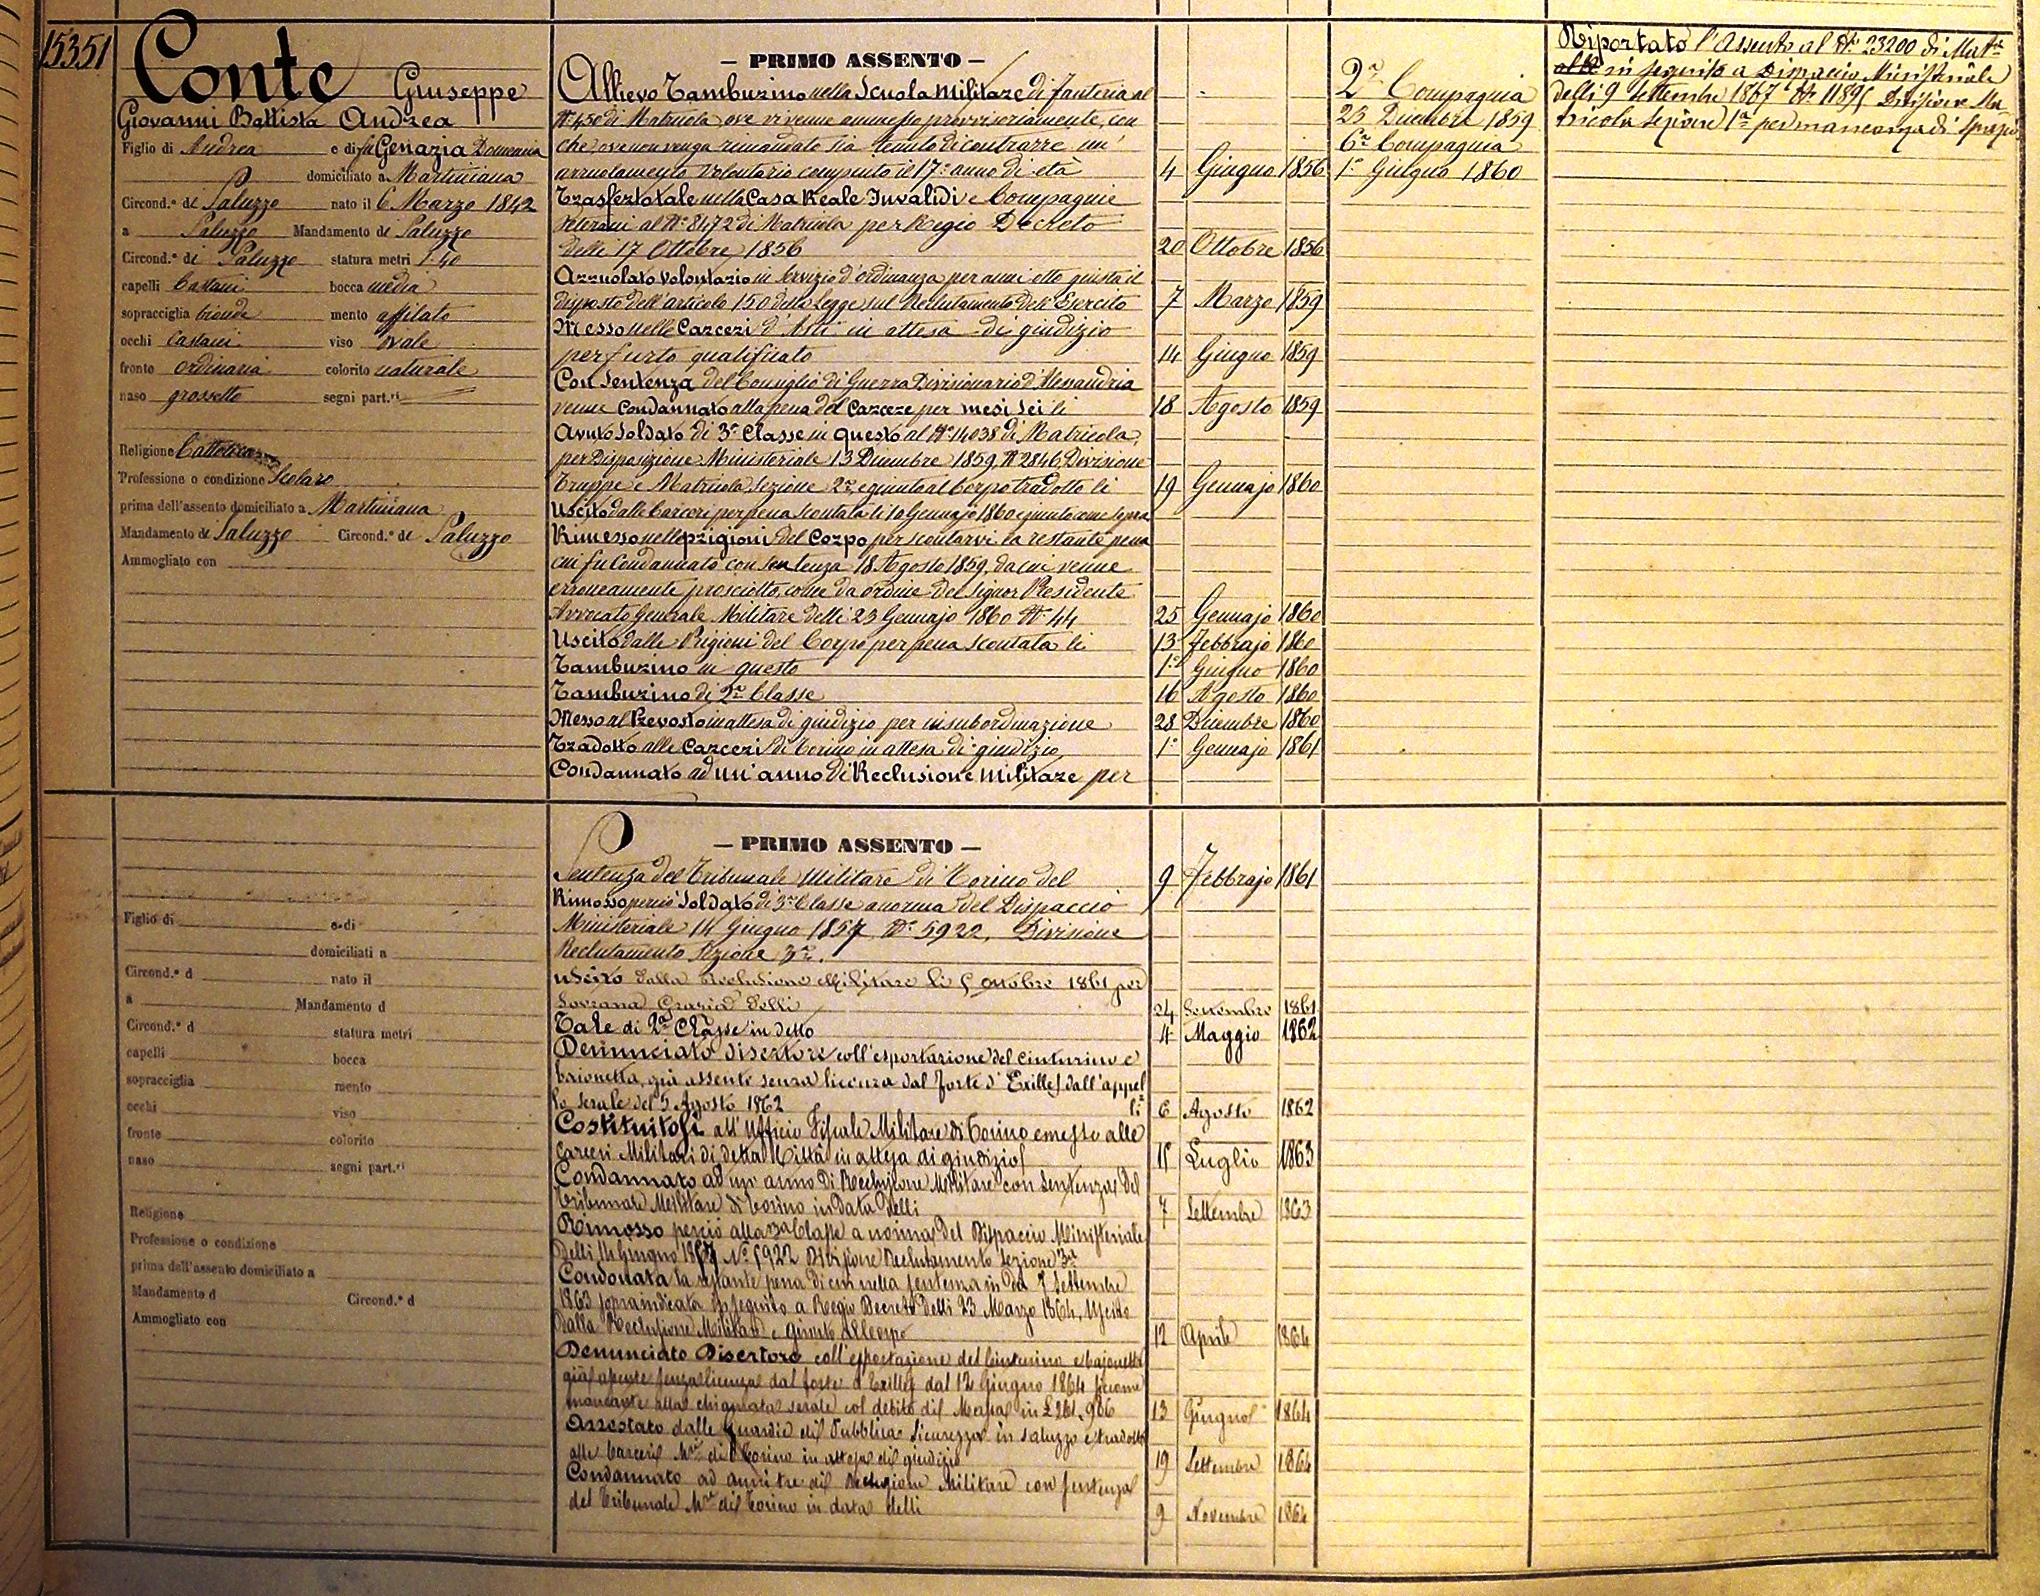 15351
Conte Giuseppe
Giovanni Battista Andrea
Figlio di Andrea e di fu Genazia Domenica
domiciliato a Martiniana
Circond.º di Saluzzo nato il 6 Marzo 1842
a Saluzzo Mandamento di Saluzzo
Circond.º di Saluzzo statura metri 1.40
capelli Castani bocca media
sopracciglia bionde mento affilato
occhi castani viso ovale
fronte ordinaria colorito naturale
naso grossetto segni part.ri
Religione Cattolica
Professione o condizione Scolaro
prima dell'assento domiciliato a Martiniana
Mandamento di Saluzzo Circond.º di Saluzzo
Ammogliato con
— PRIMO ASSENTO —
Allievo Tamburino nella Scuola Militare di fanteria al
Nº 450 di Matricola, ove vi venne ammesso provvisoriamente, con
che, ove non venga rimandato sia tenuto di contrarre un'
arruolamento volontario compiuto il 17º anno di età 4 Giugno 1856
Trasferto tale nella Casa Reale Invalidi e Compagnie
Veterani al Nº 8472 di Matricola per Regio Decreto
delli 17 Ottobre 1856 20 Ottobre 1856
Arruolato volontario in servizio d'ordinanza per anni otto giusta il
disposto dell'articolo 150 della Legge sul Reclutamento dell'Esercito 7 Marzo 1859
Messo nelle Carceri d'Asti in attesa di giudizio
per furto qualificato 14 Giugno 1859
Con Sentenza del Consiglio di Guerra Divisionario d'Alessandria
venne Condannato alla pena del Carcere per mesi sei li 18 Agosto 1859
Avuto Soldato di 3ª Classe in questo al Nº 14038 di Matricola,
per Disposizione Ministeriale 13 Dicembre 1859 Nº 2846 Divisione
Truppe e Matricola, Sezione 2ª, e giunto al Corpo tradotto li 19 Gennajo 1860
Uscito dalle Carceri per pena scontata li 10 Gennajo 1860 e giunto come sopra
Rimesso nelle prigioni del Corpo per scontarvi la restante pena
cui fu Condannato con sentenza 18 Agosto 1859, da cui venne
erroneamente prosciolto, come da ordine del Signor Presidente
Avvocato Generale Militare delli 23 Gennajo 1860 Nº 44 25 Gennajo 1860
Uscito dalle Prigioni del Corpo per pena scontata li 13 Febbrajo 1860
Tamburino in questo 1º Giugno 1860
Tamburino di 2ª Classe 16 Agosto 1860
Messo al Prevosto in attesa di giudizio per insubordinazione 28 Dicembre 1860
Tradotto alle Carceri di Torino in attesa di giudizio 1º Gennajo 1861
Condannato ad un'anno di Reclusione Militare per
2ª Compagnia
23 Dicembre 1859
6ª Compagnia
1º Giugno 1860
Riportato l'Assento al Nº 23200 di Matª
in seguito a Dispaccio Ministeriale
delli 9 Settembre 1867 Nº 11895 Divisione Ma
tricola Sezione 1ª per mancanza di spazio
Figlio di e di
domiciliati a
Circond.º d nato il
a Mandamento d
Circond.º d statura metri
capelli bocca
sopracciglia mento
occhi viso
fronte colorito
naso segni part.ri
Religione
Professione o condizione
prima dell'assento domiciliato a
Mandamento d Circond.º d
Ammogliato con
— PRIMO ASSENTO —
Sentenza del Tribunale Militare di Torino del 9 Febbrajo 1861
Rimosso perciò Soldato di 3ª Classe a norma del Dispaccio
Ministeriale 14 Giugno 1857 Nº 5922, Divisione
Reclutamento Sezione 3ª.
Uscito dalla Reclusione Militare li 5 Ottobre 1861 per
Sovrana Grazia delli 24 Settembre 1861
Tale di 2ª Classe in detto 4 Maggio 1862
Denunciato disertore coll'esportazione del cinturino e
baionetta, già assente senza licenza dal forte d'Exilles dall'appel
lo serale del 5 Agosto 1862 li 6 Agosto 1862
Costituitosi all'Ufficio Fiscale Militare di Torino e messo alle
Carceri Militari di detta Città in attesa di giudizio 15 Luglio 1863
Condannato ad un'anno di Reclusione Militare con sentenza del
Tribunale Militare di Torino in data delli 7 Settembre 1863
Rimosso perciò alla 3ª Classe a norma del Dispaccio Ministeriale
delli 14 Giugno 1857 Nº 5922 Divisione Reclutamento Sezione 3ª
Condonata la restante pena di cui nella sentenza in dª 7 Settembre
1863 sopraindicata in seguito a Regio Decreto delli 23 Marzo 1864, Uscito
dalla Reclusione Militare e giunto al Corpo 12 Aprile 1864
Denunciato Disertore coll'esportazione del Cinturino e bajonetta
già assente senza licenza dal forte d'Exilles dal 12 Giugno 1864 siccome
mancante alla chiamata serale col debito di Massa in £ 261,966 13 Giugno 1864
Arrestato dalle Guardie di Pubblica Sicurezza in Saluzzo e tradotto
alle Carceri Mri di Torino in attesa di giudizio 19 Settembre 1864
Condannato ad anni tre di Reclusione Militare con sentenza
del Tribunale Mre di Torino in data delli 9 Novembre 1864